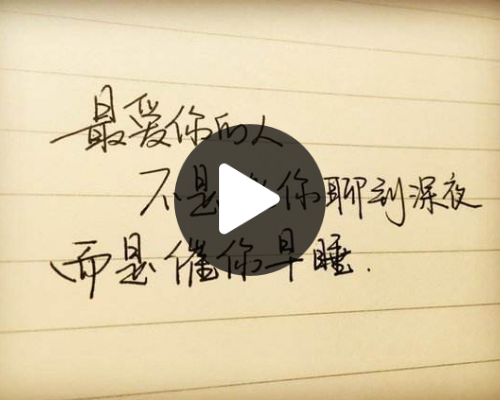 最爱你的人
不是 你聊到深夜
而是催你早睡.